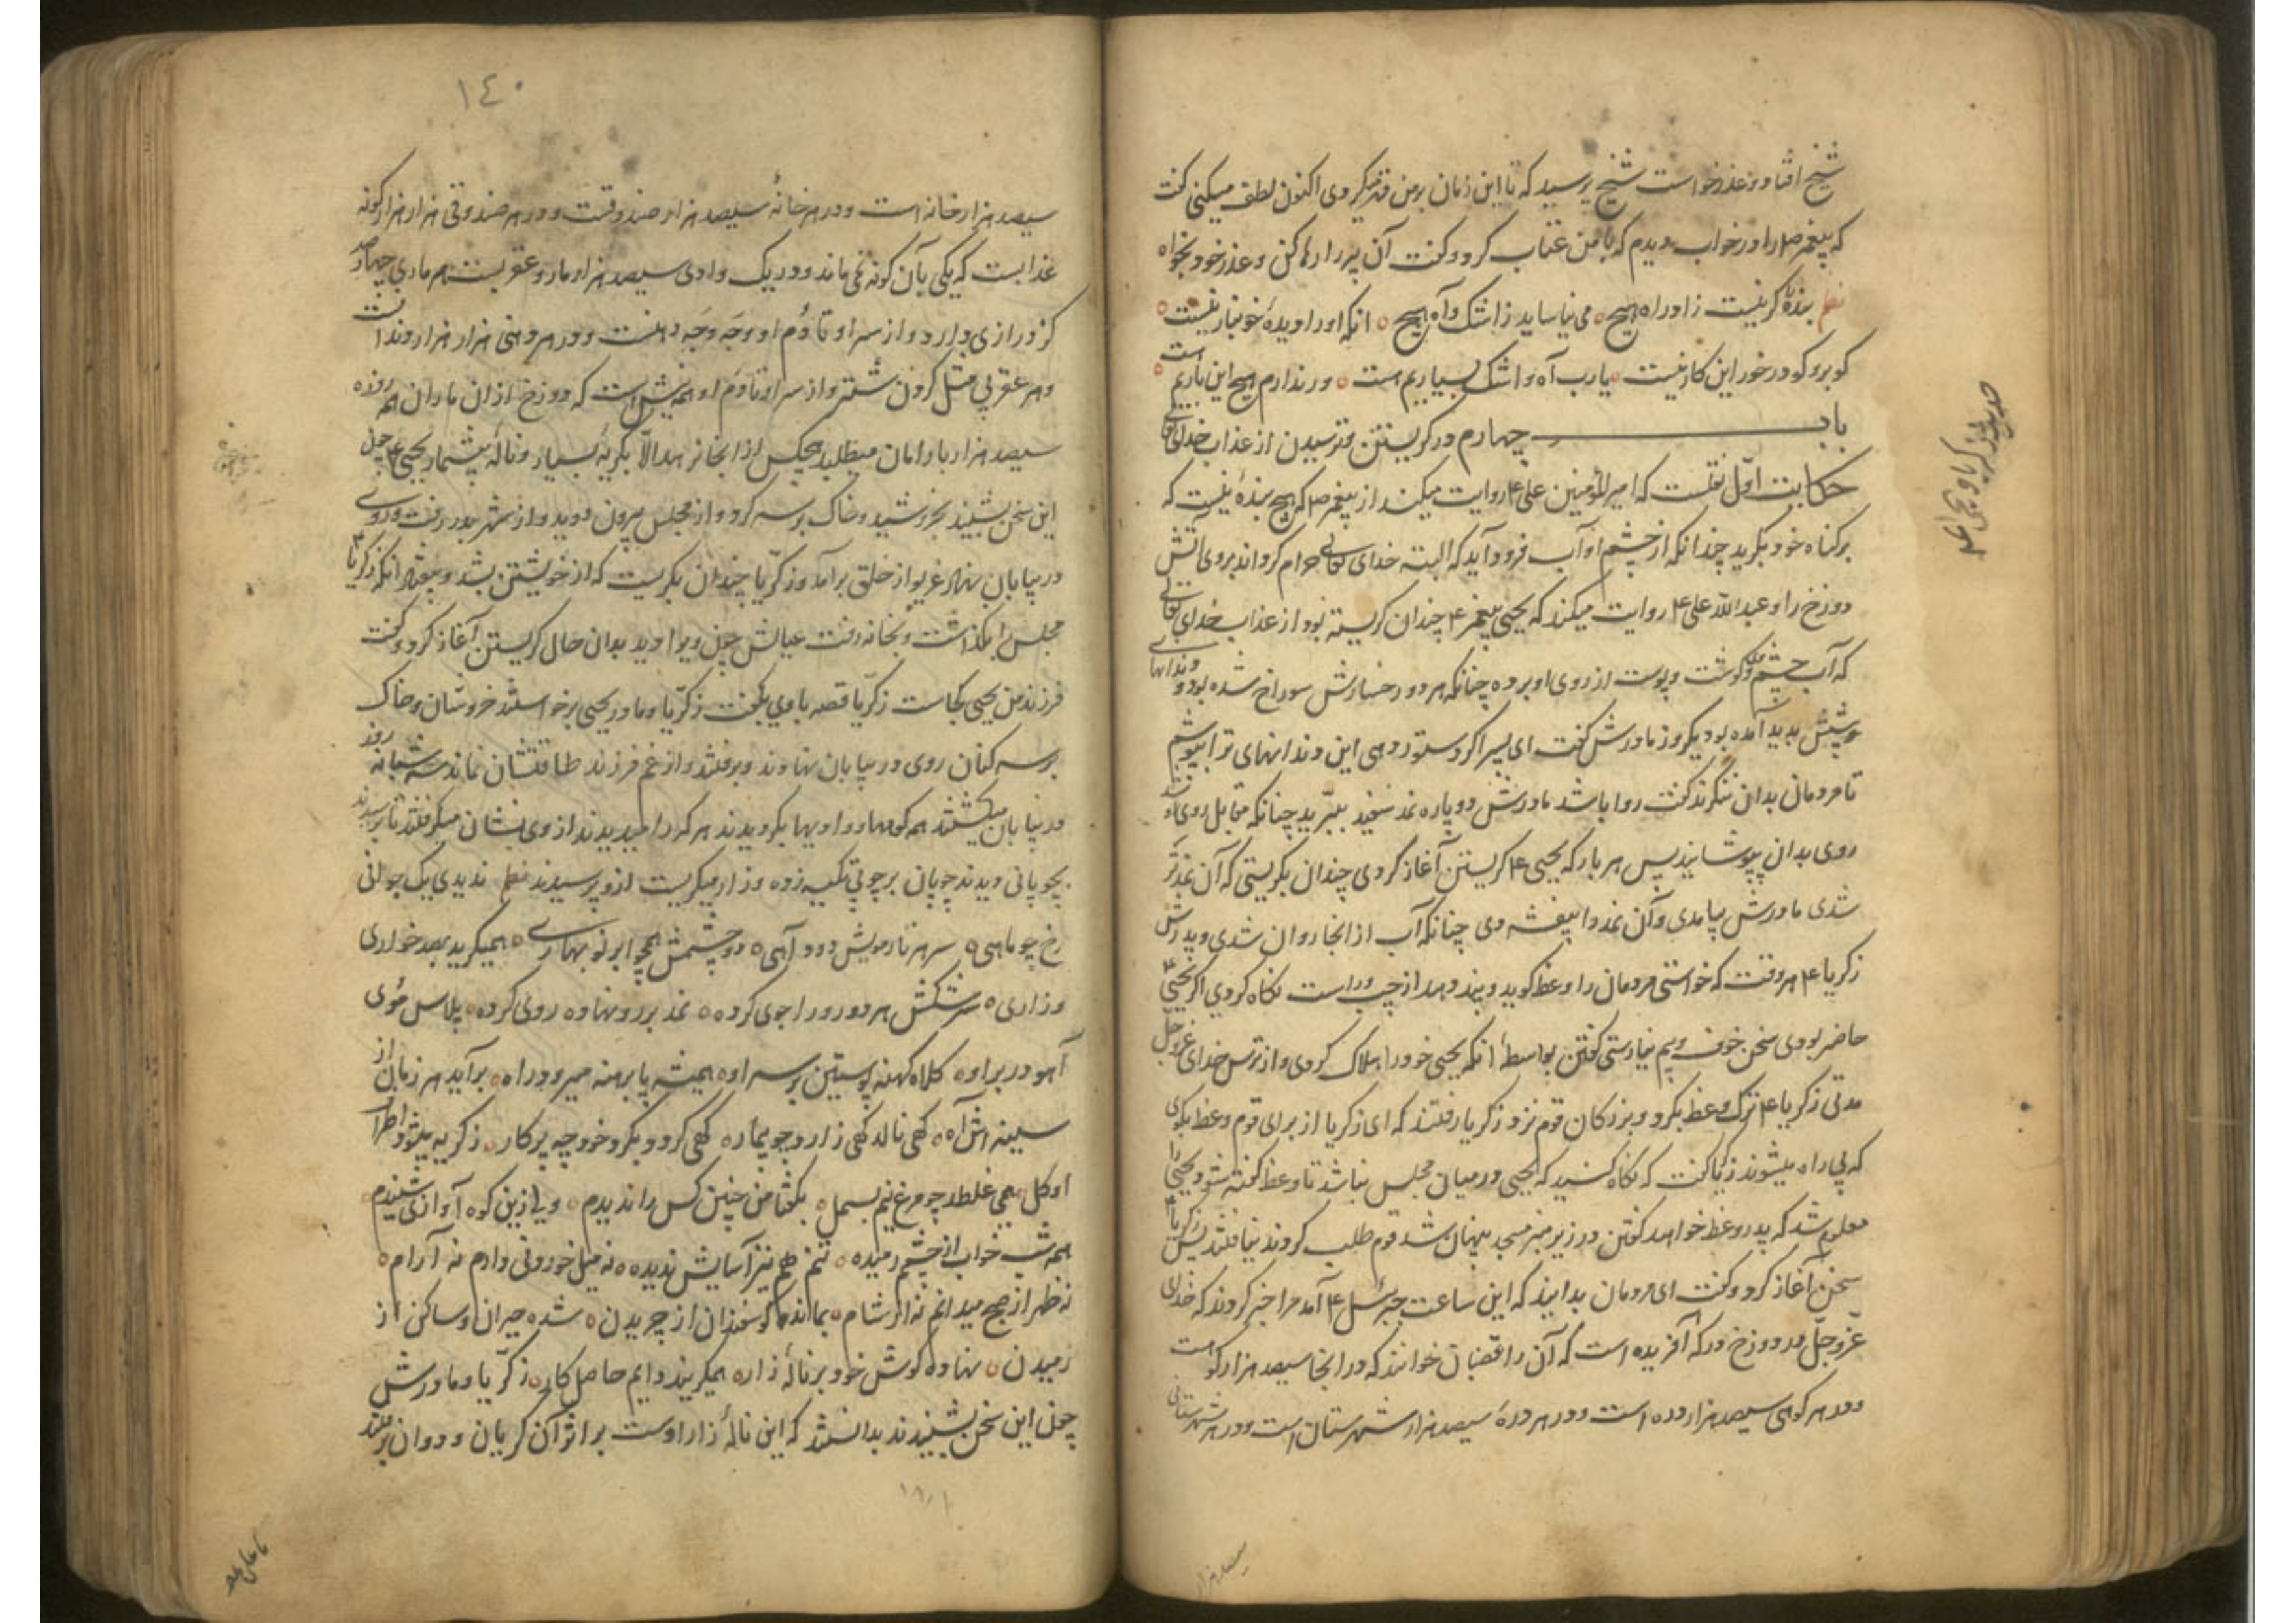 شیخ افتاد و عذر خواست شیخ پرسید که تا این زمان بر من قهر میکردی اکنون لطف میکنی گفت
که پیغمبر صلم را در خواب دیدم که با من عتاب کرد و گفت آن پیر را رها کن و عذر خود بخواه
نظم بنده گر نیست زاد راه هیچ ه می نیاساید ز اشک و آه هیچ ه انکه او را دیده خونبار نیست ه
کو برو کو در خور این کار نیست ه یارب آه و اشک بسیاریم هست ه ور ندارم هیچ این باریم است ه
باب چهارم در گریستن و ترسیدن از عذاب خدای تعالی
حکایت اول نقلست که امیر المؤمنین علی ع روایت میکند از پیغمبر ص که هیچ بنده نیست که
بر گناه خود بگرید چندانکه از چشم او آب فرود آید که البته خدای تعالی حرام گرداند بروی آتش
دوزخ را و عبد الله علی ع روایت میکند که یحیی پیغمبر ع چندان گریسته بود از عذاب خدای تعالی
که آب چشم وی گوشت و پوست از روی او برده چنانکه هر دو رخسارش سوراخ شده بود و دندانهای
پدید آمده بود یکروز مادرش گفت ای پسر اگر دستور دهی این دندانهای ترا بپوشم
تا مردمان بدان ننگرند گفت روا باشد مادرش دو پاره نمد سفید ببرید چنانکه مقابل روی او
روی بدان بپوشانید پس هر بار که یحیی ع گریستن آغاز کردی چندان بگریستی که آن نمد تر
شدی مادرش بیامدی و آن نمد را بیفشردی چنانکه آب از انجا روان شدی و پدرش
زکریا ع هر وقت که خواستی مردمان را وعظ گوید و پند دهد از چپ و راست نگاه کردی اگر یحیی ع
حاضر بودی سخن خوف و بیم نیارستی گفتن بواسطه انکه یحیی خود را هلاک کردی و از ترس خدای عز و جل
مدتی زکریا ع ترک وعظ بکرد و بزرگان قوم نزد زکریا رفتند که ای زکریا از برای قوم وعظ بگوی
که بی راه میشوند زکریا گفت که نگاه کنید که یحیی در میان مجلس نباشد تا وعظ گفته شود یحیی را
معلوم شد که پدر وعظ خواهد گفتن در زیر منبر مسجد پنهان شد قوم طلب کردند نیافتند پس زکریا ع
سخن آغاز کرد و گفت ای مردمان بدانید که این ساعت جبرئیل ع آمد مرا خبر کردند که خدای
عز و جل در دوزخ درکه آفریده است که آن را غضبان خوانند که در انجا سیصد هزار کوه است
و در هر کوهی سیصد هزار دره است و در هر دره سیصد هزار شهرستان است و در هر شهرستانی
سیصد هزار
حدیث زکریا و یحیی ع
١٤٠
سیصد هزار خانه است و در هر خانه سیصد هزار صندوقست و در هر صندوقی هزار هزار گونه
عذابست که یکی بآن گونه نمی ماند و در یک وادی سیصد هزار مار و عقربست هر ماری چهارصد
گز درازی دارد و از سر او تا دُم او وجه وجه دهنست و در هر دهنی هزار هزار دندانست
و هر عقربی مثل گردن شتر و از سر او تا دم او همه نیش است که دوزخ از آن ماران همه روزه
سیصد هزار بار امان میطلبد هیچکس از انجا نرهد الا بگریه بسیار و ناله بیشمار یحیی ع چون
این سخن بشنید بخروشید و خاک بر سر کرد و از مجلس بیرون دوید و از شهر بدر رفت و روی
در بیابان نهاد غریو از خلق برآمد و زکریا چندان بگریست که از خویشتن بشد و زکریا ع
مجلس را بگذاشت و بخانه رفت عیالش چون ویرا دید بدان حال گریستن آغاز کرد و گفت
فرزند من یحیی کجاست زکریا قصه با وی بگفت زکریا و مادر یحیی برخواستند خروشان و خاک
بر سر کنان روی در بیابان نهادند و برفتند و از غم فرزند طاقتشان نماند سه شبانه روز
در بیابان میگشتند همه کوهها و وادیها بگردیدند هر کرا میدیدند از وی نشان میگرفتند تا برسیدند
بچوپانی دیدند چوپان بر چوبی تکیه زده و زار میگریست ازو پرسیدند نظم ندیدی یک جوانی
رخ چو ماهی ه سر هر تار مویش دود آهی ه دو چشمش همچو ابر نوبهاری ه همیگرید بصد خواری
و زاری ه سرشکش هر دو رو را جوی کرده ه نمد بر رو نهاده روی کرده ه پلاس موی
آهو در بر او ه کلاه کهنه پوستین بر سر او ه همیشه پا برهنه میرود راه ه برآید هر زمان از
سینه اش آه ه گهی نالد گهی زارد چو بیمار ه گهی گردد بگرد خود چو پرکار ه ز گریه میشود اطراف
او گل ه همی غلطد چو مرغ نیم بسمل ه بگفتا من چنین کس را ندیدم ه ولی زین کوه آوازی شنیدم ه
همه شب خواب از چشم رمیده ه تنم هم نیز آسایش ندیده ه نه میل خوردنی دارم نه آرام ه
نه ظهر از صبح میدانم نه از شام ه بمانده گوسفندان از چریدن ه شده حیران و ساکن از
رمیدن ه نهاده گوش خود بر ناله زار ه همیگریند دایم حاصل کار ه زکریا و مادرش
چون این سخن بشنیدند بدانستند که این ناله زار اوست بر اثر آن گریان و دوان برفتند